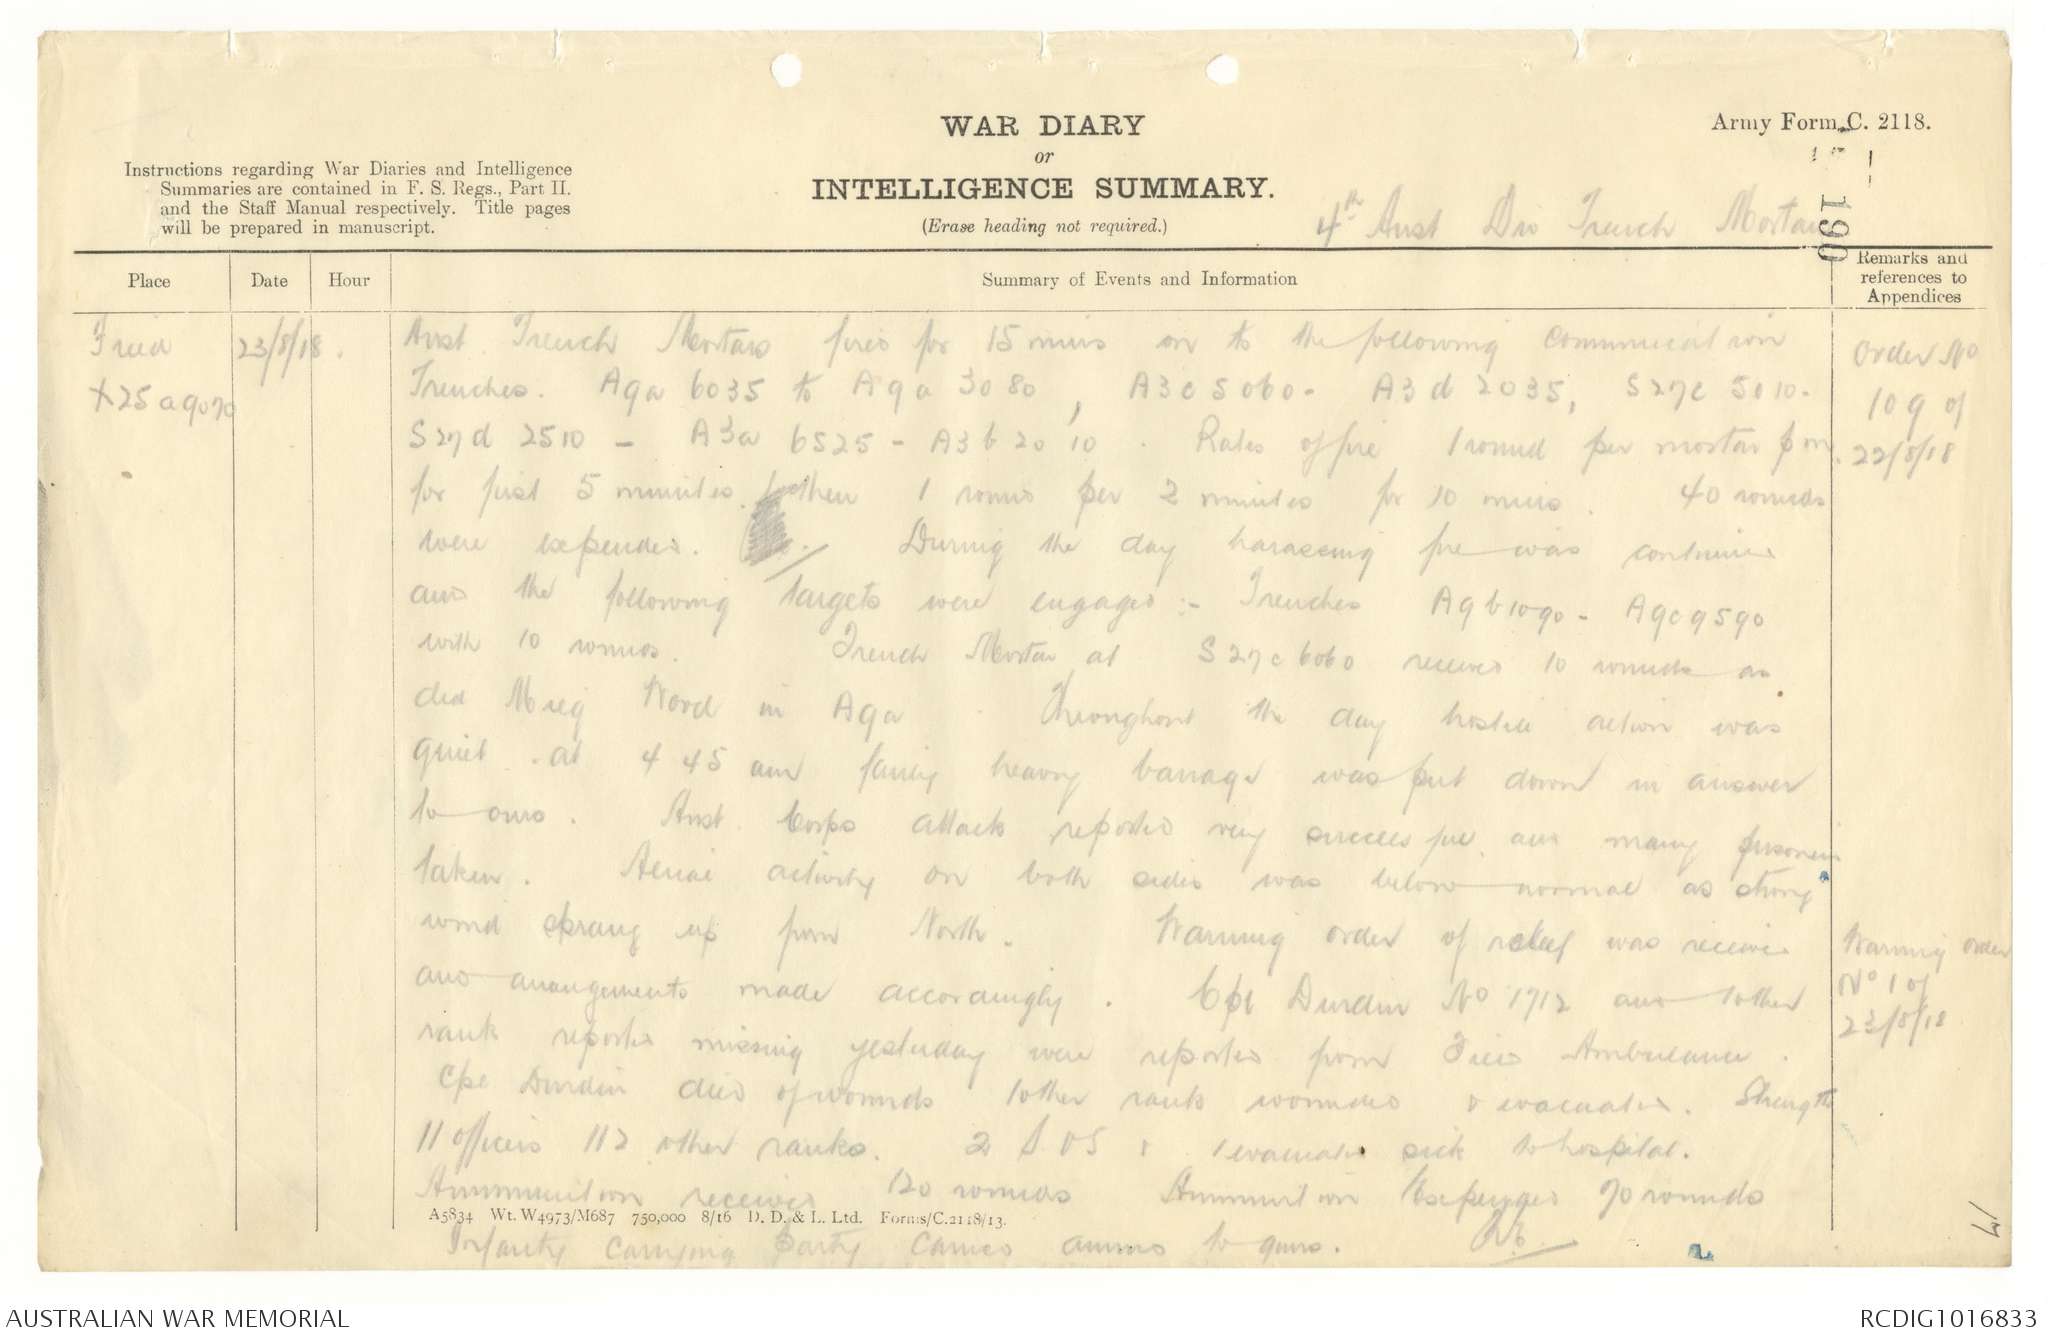 WAR DIARY
or
INTELLIGENCE SUMMARY.
(Erase heading not required.)
Army Form C. 2118.
Instructions regarding War Diaries and Intelligence
Summaries are contained in F. S. Regs., Part II.
and the Staff Manual respectively. Title pages
will be prepared in manuscript.
4th Aust Div Trench Mortars
190
Place
Date
Hour
Summary of Events and Information
Remarks and
references to
Appendices
Field
X25 a 9070
23/8/18.
Aust Trench Mortars fired for 15 mins on to the following Communication
Trenches. A9a 6035 to A9a 3080, A3c5060 - A3d 2035, S27c 5010 -
S27d 2510 - A3a 6525 - A3b 2010. Rates of fire 1 round per mortar p m.
for first 5 minutes then 1 round per 2 minutes for 10 mins. 40 rounds
were expended. During the day harassing fire was continued
and the following targets were engaged :- Trenches A9b1090 - A9c9590
with 10 rounds. Trench Mortar at S27c6060 received 10 rounds as
did Wood in A9a. Throughout the day hostile action was
quiet. at 4 45 am fairly heavy barrage was put down in answer
to ours. Aust Corps attack reported very successful and many prisoners
taken. Aerial activity on both sides was below normal as strong
wind sprang up from North. Warning order of relief was received
and arrangements made accordingly. Cpl Durdin No 1712 and 1 other
rank reported missing yesterday were reported from Field Ambulance.
Cpl Durdin died of wounds 1 other rank wounded & evacuated. Strength
11 officers 112 other ranks. 2 & 1 evacuated sick to hospital.
Ammunition received 120 rounds Ammunition Expended 70 rounds
Infantry carrying party carried ammo to guns.
Order No
109 of
22/8/18
Warning order
No 1 of
23/8/18
A5834 Wt. W4973/M687 750,000 8/16 D. D. & L. Ltd. Forms/C.2118/13.
17
AUSTRALIAN WAR MEMORIAL
RCDIG1016833